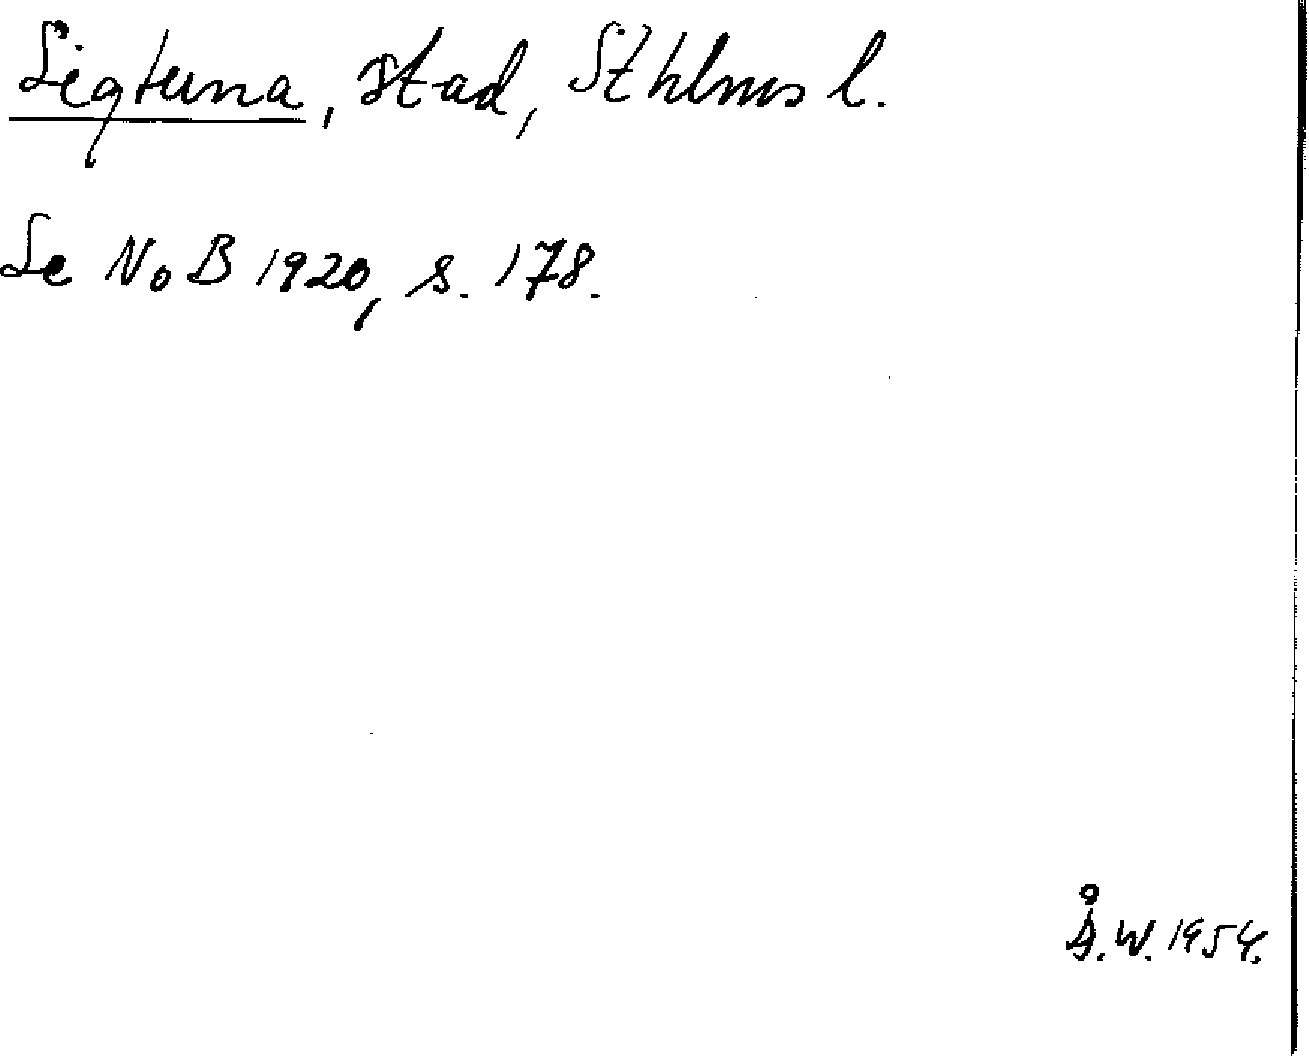 Sigtuna, stad, Sthlms l.
Se NoB 1920, s. 178.
Å.W. 1954.